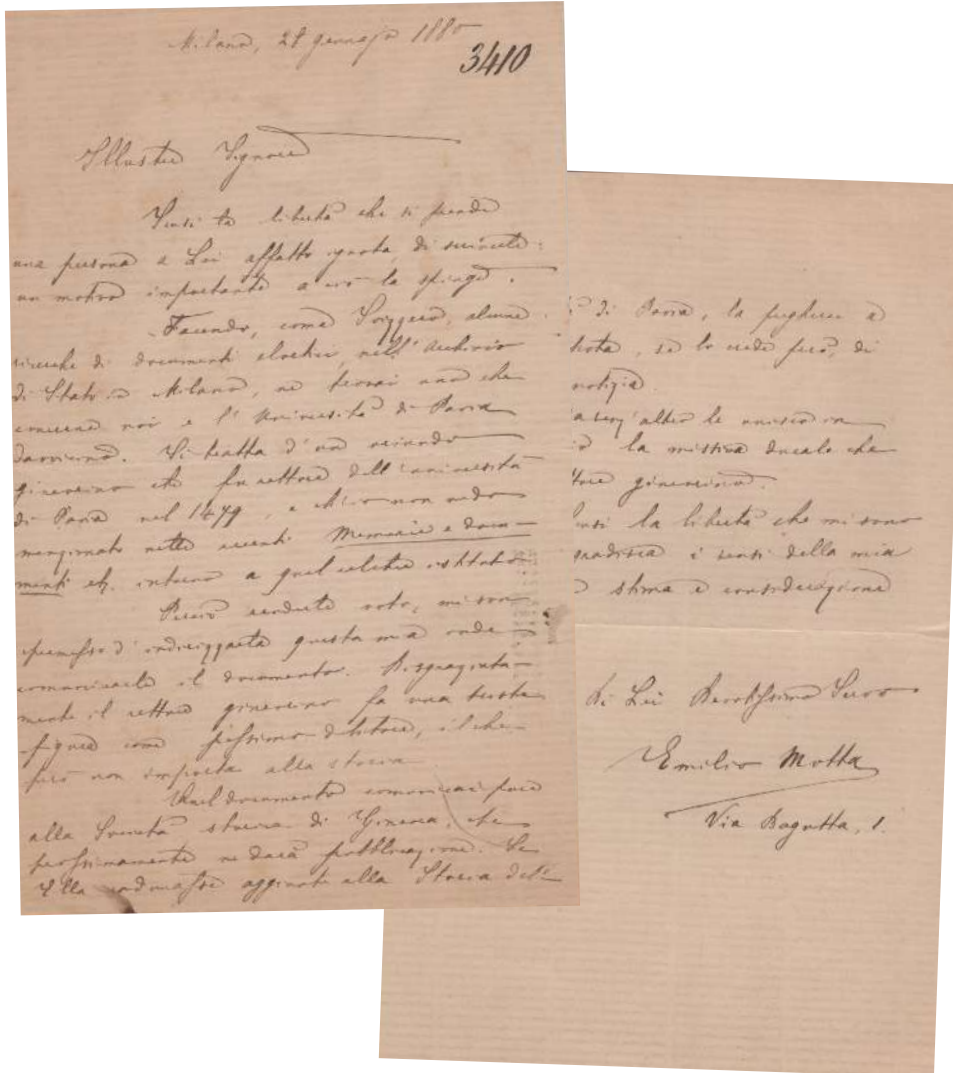 Milano, 28 gennajo 1880
3410
Illustre Signore
Scusi la libertà che si prende
una persona a Lei affatto ignota, di scriverle:
un motivo importante a ciò la spinge.
Facendo, come Svizzero, alcune
ricerche di documenti elvetici, nell' Archivio
di Stato in Milano, ne trovai uno che
concerne noi e l' Università di Pavia
davvicino. Si tratta d'un
ginevrino che fu rettore dell' università
di Pavia nel 1479, e ch'io non vedo
menzionato nelle recenti Memorie e docu-
menti etc. intorno a quel celebre istituto.
Perciò noto, mi son
permesso d' indirizzarle questa mia onde
comunicarle il documento. Disgraziata-
mente il rettore ginevrino fa una trista
figura come pessimo debitore, il che
però non importa alla storia.
Quel documento comunicai pure
alla Società storica di Ginevra, che
prossimamente ne darà pubblicazione. Se
Ella aggiunte alla Storia dell'
di Pavia, la pregherei a
nota, se lo crede però, di
notizia.
senz' altro le unisco in
la missiva ducale che
ginevrino.
Scusi la libertà che mi sono
gradisca i sensi della mia
stima e considerazione
Di Lei Devotissimo Servo
Emilio Motta
Via Bagutta, 1.